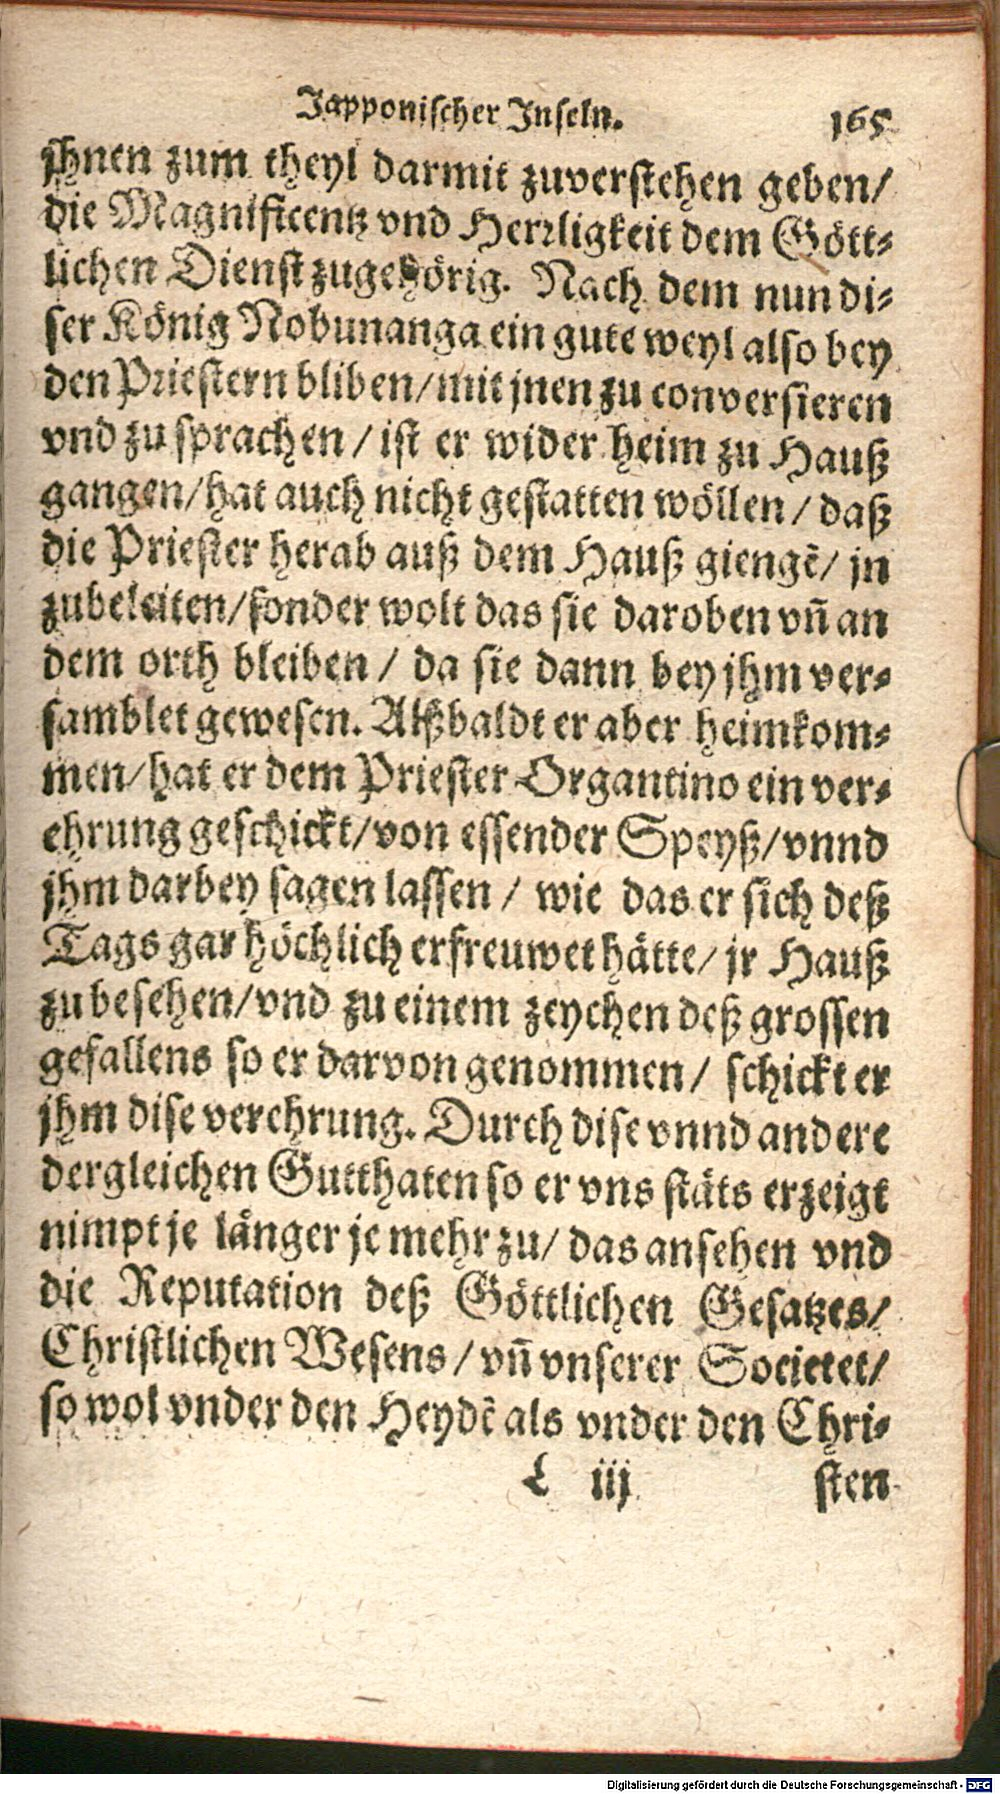 Japponischer Inseln. 165
jhnen zum theyl darmit zuverstehen geben/
die Magnificentz vnd Herrligkeit dem Gött-
lichen Dienst zugehörig. Nach dem nun di-
ser König Nobunanga ein gute weyl also bey
den Priestern bliben/ mit jnen zu conversieren
vnd zu sprachen / ist er wider heim zu Hauß
gangen/ hat auch nicht gestatten wöllen / daß
die Priester herab auß dem Hauß giengē/ jn
zubeleiten/ sonder wolt das sie daroben vn̄ an
dem orth bleiben / da sie dann bey jhm ver-
samblet gewesen. Alßbaldt er aber heimkom-
men/ hat er dem Priester Organtino ein ver-
ehrung geschickt/ von essender Speyß/ vnnd
jhm darbey sagen lassen / wie das er sich deß
Tags gar höchlich erfreuwet hätte/ jr Hauß
zu besehen/ vnd zu einem zeychen deß grossen
gefallens so er darvon genommen/ schickt er
jhm dise verehrung. Durch dise vnnd andere
dergleichen Gutthaten so er vns stäts erzeigt
nimpt je länger je mehr zu/ das ansehen vnd
die Reputation deß Göttlichen Gesatzes/
Christlichen Wesens / vn̄ vnserer Societet/
so wol vnder den Heydē als vnder den Chri-
L iij sten
Digitalisierung gefördert durch die Deutsche Forschungsgemeinschaft - DFG